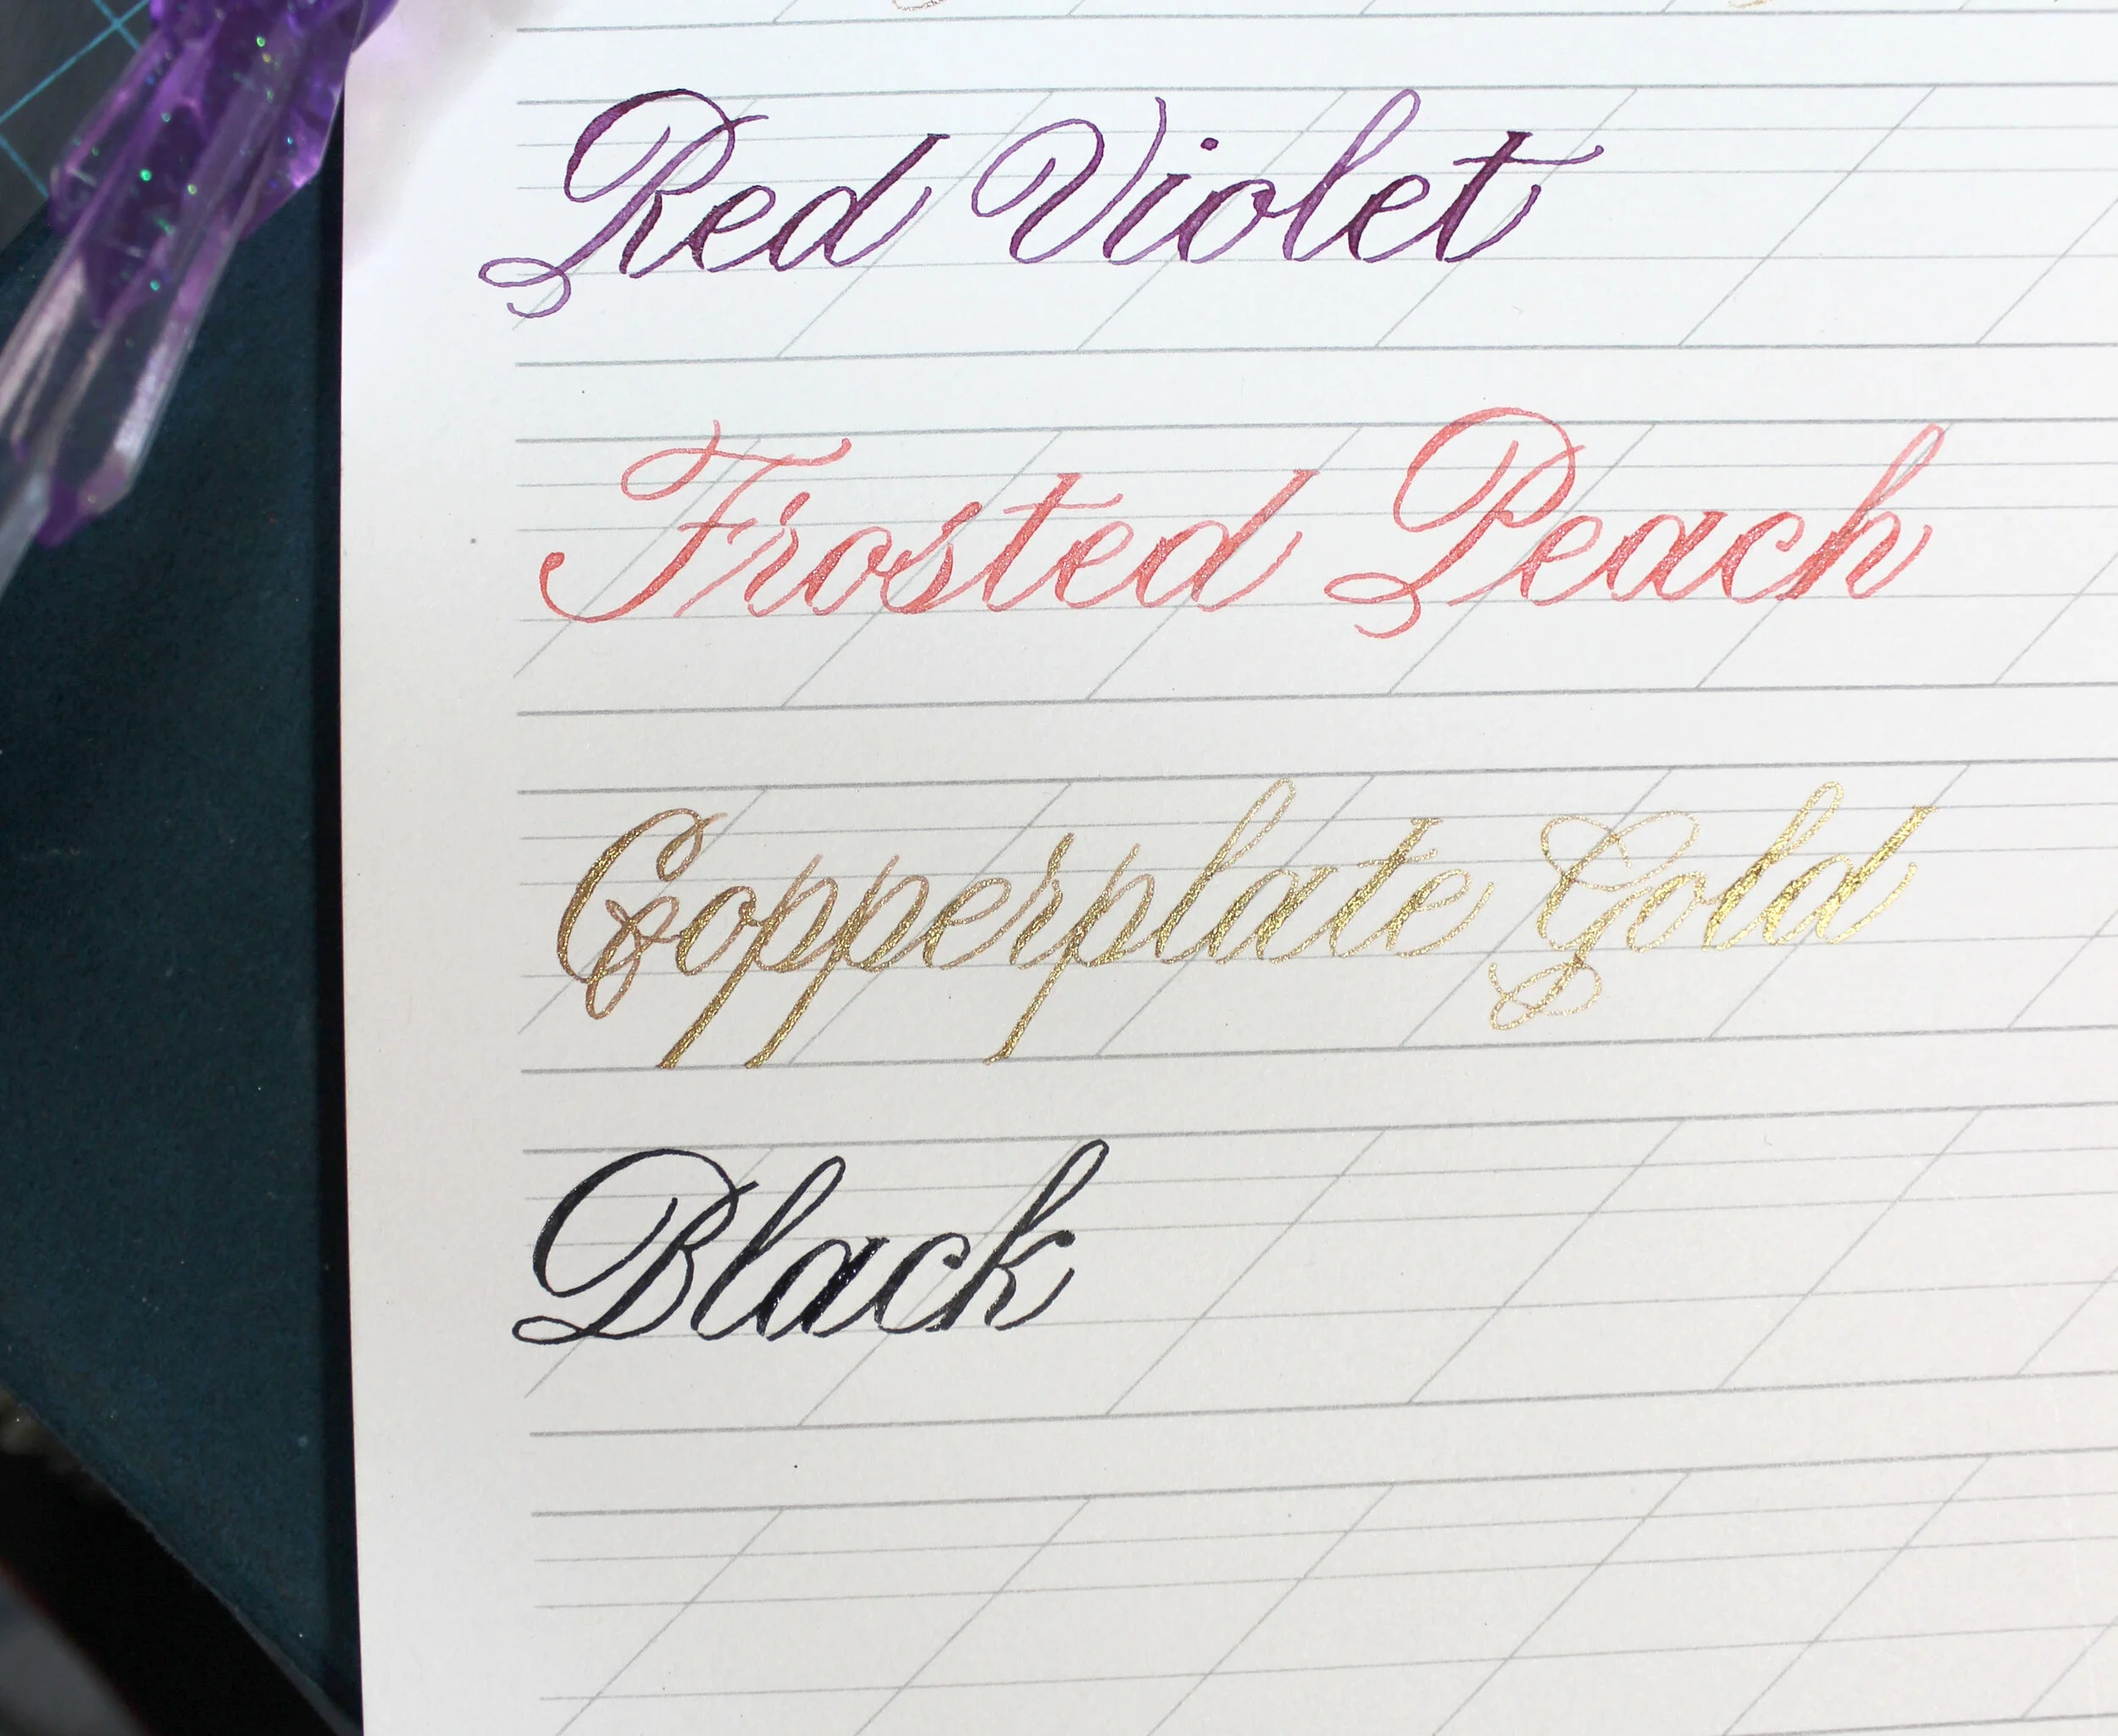 Red Violet
Frosted Peach
Copperplate Gold
Black